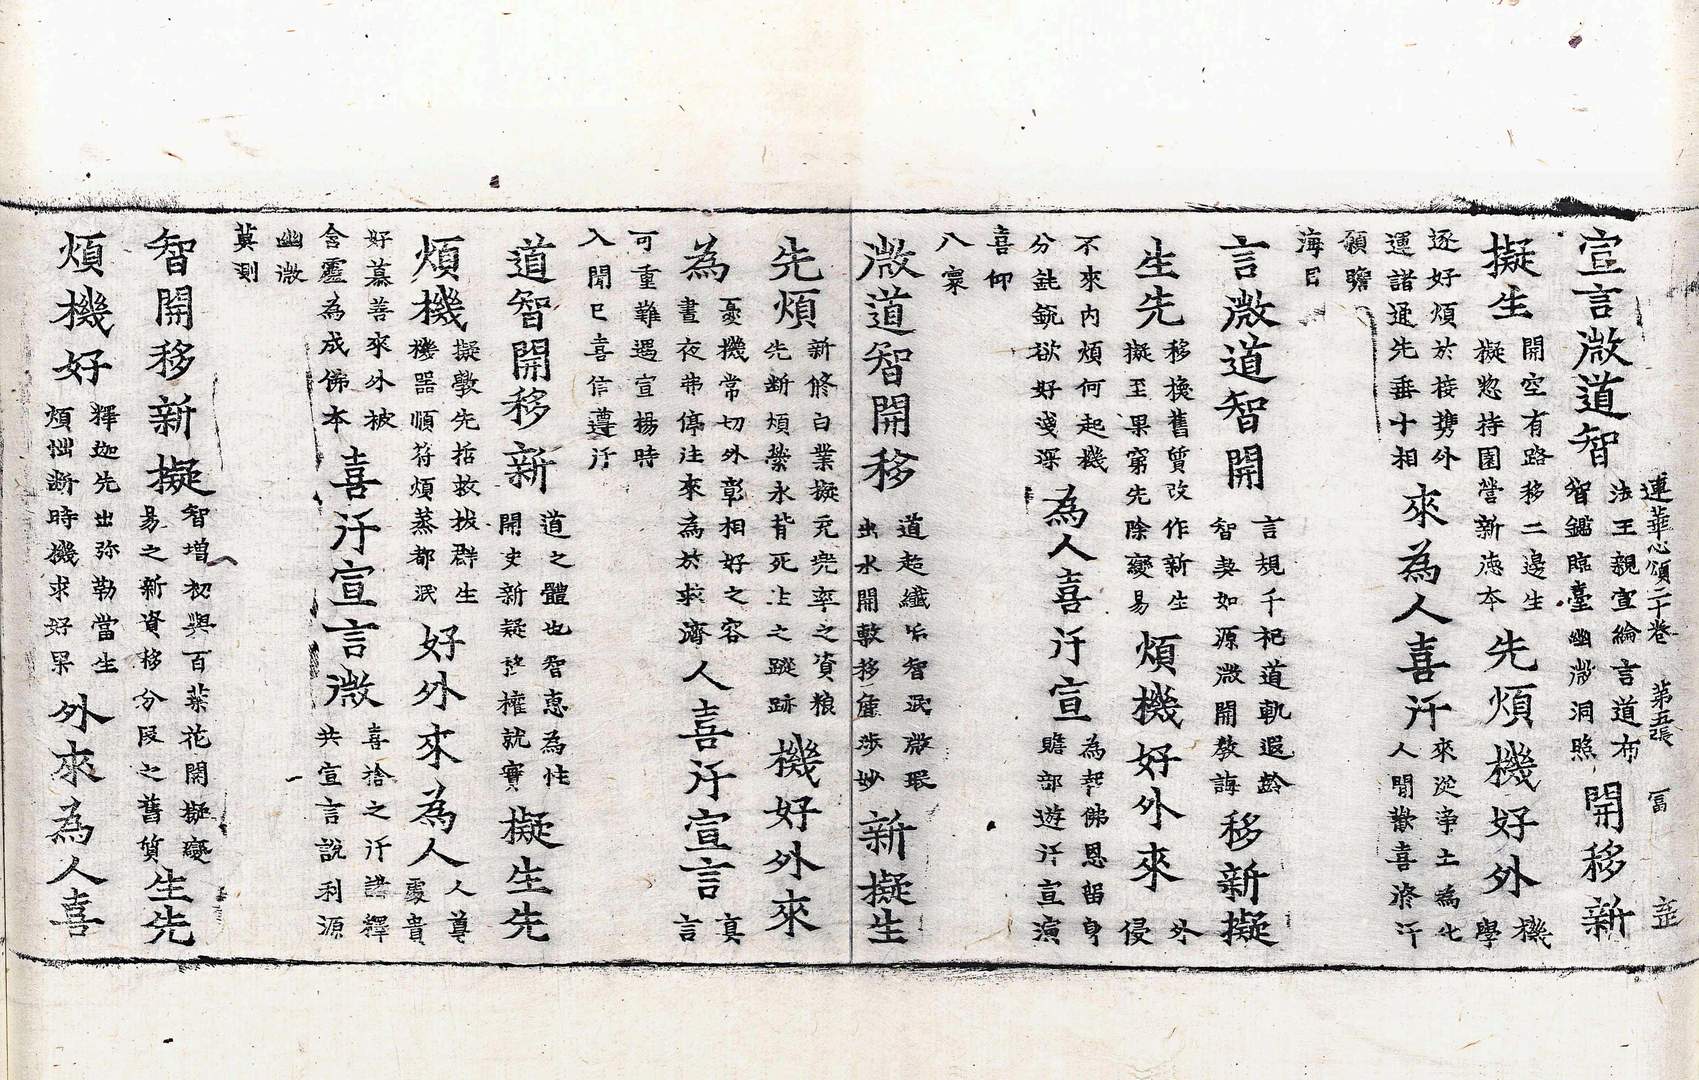 連華心頌二十卷 第五張 冨
宣言微道智法王親宣綸言道布智鑑臨臺幽微洞照開移新
擬生開空有路移二邊生擬忽持園營新德本先煩機好外機學
逐好煩於接携外運諸通先垂十相來為人喜汗來從淨土為化人聞歡喜添汗
顏瞻海目
言微道智開言規千祀道軌遐齡智契如源微開教誨移新擬
生先移換舊質改作新生擬至果窮先除變易煩機好外來外侵
不來內煩何起機分鈍銳欲好淺深為人喜汗宣為報佛恩留身贍部遊汗宣演
喜仰八稟
微道智開移道超纖垢智泯微瑕出水開敷移塵涉妙新擬生
先煩新修白業擬充兜率之資粮先斷煩縈永背死生之蹤跡機好外來
為憂機常切外彰相好之容晝夜弗停注來為於求濟人喜汗宣言真言
可重難遇宣揚時入聞已喜信遵汗
道智開移新道之體也智惠為性開史新疑移權就實擬生先
煩機擬斅先哲救拔群生機器順符煩蒸都泯好外來為人人尊處貴
好慕善來外被含靈為成佛本喜汗宣言微喜捨之汗講釋共宣言說利源
幽微莫測
智開移新擬智增初與百葉花開擬變易之新資移分段之舊質生先
煩機好釋迦先出弥勒當生煩惱斷時機求好果外來為人喜